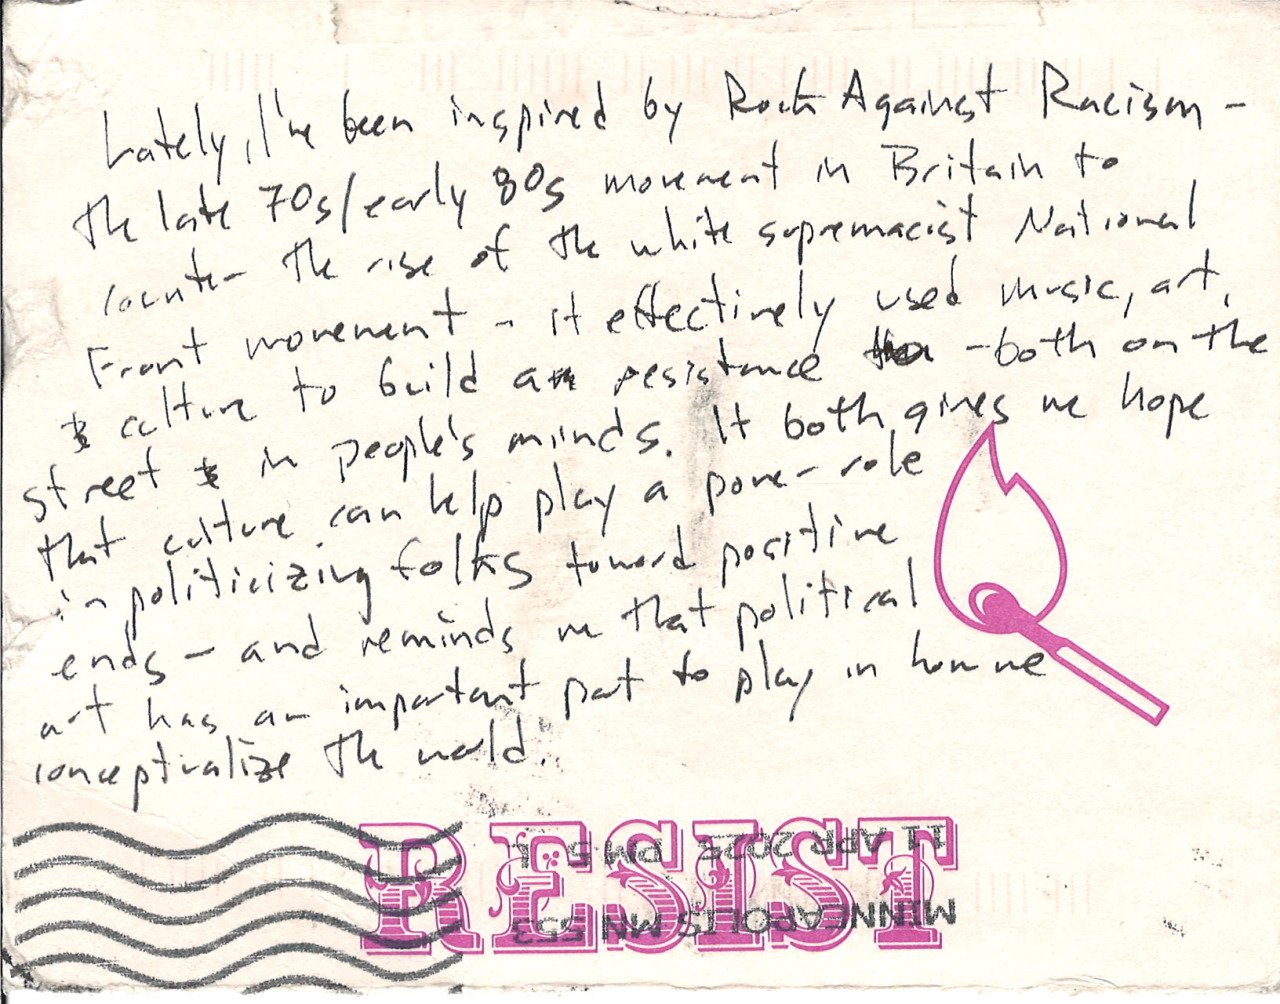 Lately, I've been inspired by Rock Against Racism -
the late 70s/early 80s movement in Britain to
counter the rise of the white supremacist National
Front movement - it effectively used music, art,
& culture to build a resistance - both on the
street & in people's minds. It both gives me hope
that culture can help play a power role
in politicizing folks toward positive
ends - and reminds me that political
art has an important part to play in how we
conceptualize the world.
RESIST
MINNEAPOLIS MN 553
11 APR 2025 PM 5 L